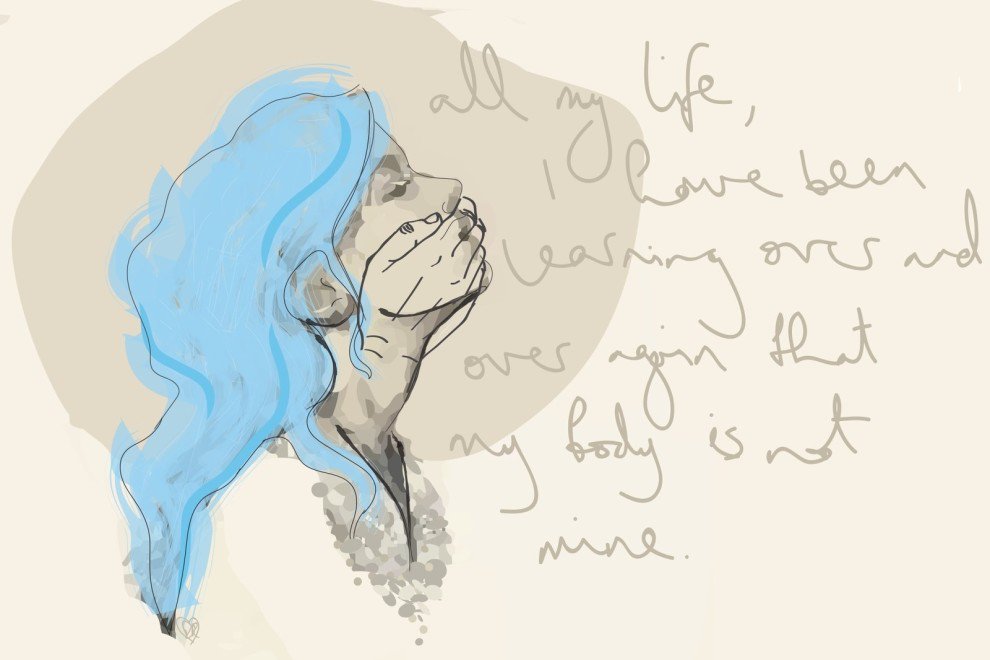 all my life,
I have been
learning over and
over again that
my body is not
mine.